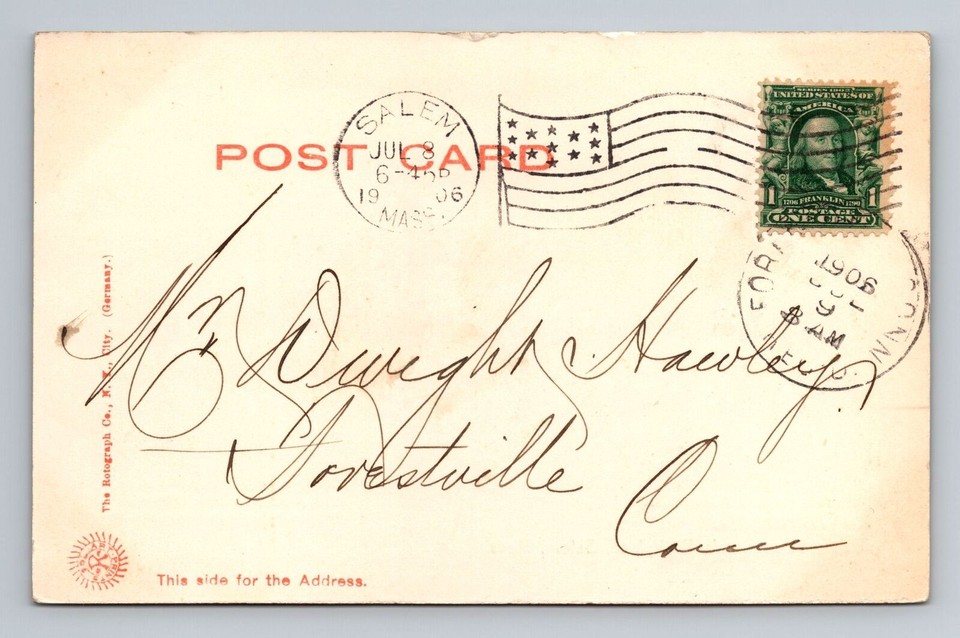 POST CARD
SALEM
JUL 8
6-45P
1906
MASS.
SERIES 1902
UNITED STATES OF
AMERICA
1 1
1706 FRANKLIN 1790
POSTAGE
ONE CENT
1906
JUL
9
8 AM
CONN.
Mr Dwight Hawley,
Forestville
Conn
The Rotograph Co., N. Y. City. (Germany.)
This side for the Address.